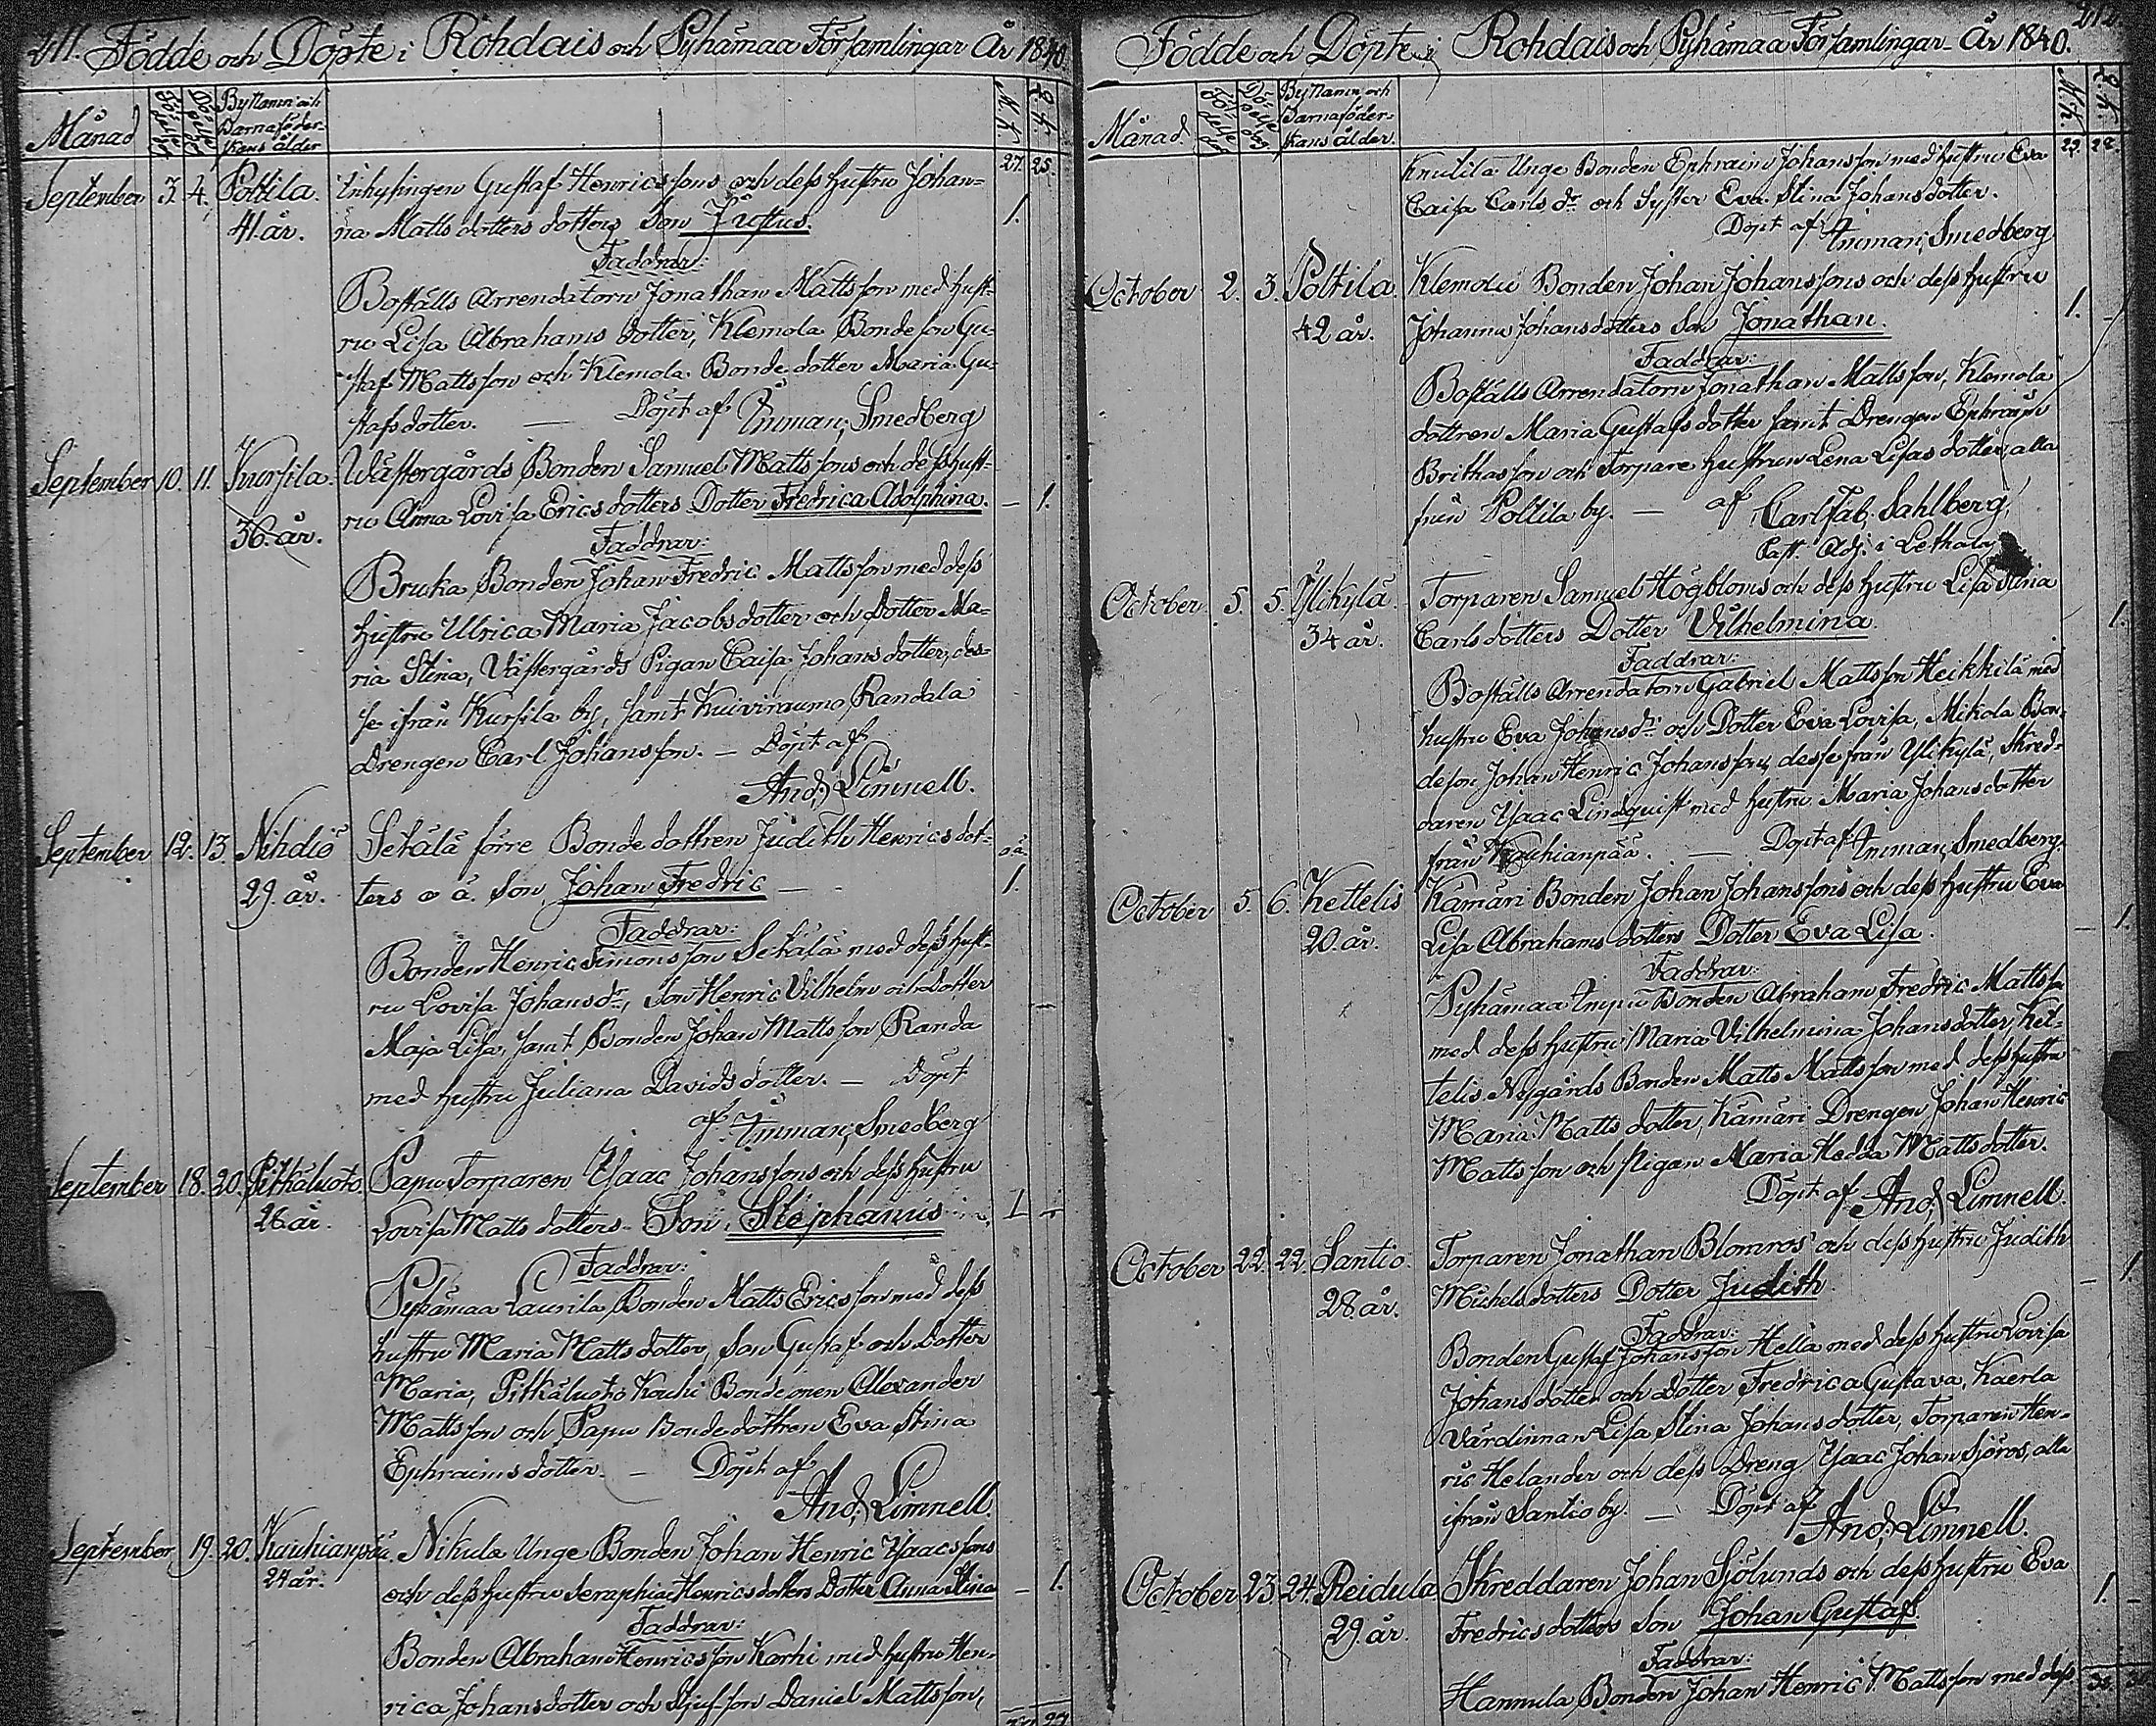 211. Födde och Döpte i Rohdais och Pyhämaa Församlingar År 1840
Månad
By Namn och
Barnaföder-
skans ålder
M.K. Q.K.
27. 25.
September 3. 4. Poltila. Inhysingen Gustaf Henricssons och dess hustru Johan-
41 år. na Matts dotters dotters Son Justus. 1.
Faddrar:
Boställs Arrendatorn Jonathan Mattsson med hust-
ru Lisa Abrahams dotter, Klemola Bondeson Gu-
staf Mattsson och Klemola Bonde dotter Maria Gu-
stafsdotter. — Döpt af Imman. Smedberg
September 10. 11. Kursila. Wästergårds Bonden Samuel Mattssons och dess hust-
36. år. ru Anna Lovisa Ericsdotters Dotter Fredrica Adolphina. — 1.
Faddrar:
Bruka Bonden Johan Fredric Mattsson med dess
hustru Ulrica Maria Jacobsdotter och Dotter Ma-
ria Stina, Västergårds Pigan Caisa Johansdotter, des-
se ifrån Kursila by, samt Kuivirauma Randala
Drengen Carl Johansson. — Döpt af
And. Limnell.
September 12. 13. Nihdiö Sekälä förre Bonde dottren Judith Henricsdot-
29. år. ters o ä. Son, Johan Fredric — o.ä. 1.
Faddrar:
Bonden Henric Simonsson Sekälä med dess hust-
ru Lovisa Johansdr, Son Henric Vilhelm och Dotter
Maja Lisa, samt Bonden Johan Mattsson Randa
med hustru Juliana Davidsdotter. — Döpt
af Imman. Smedberg
September 18. 20. Pitkäluoto Papu Torparen Isaac Johanssons och dess hustru
26 år. Lovisa Mattsdotters Son, Stephanus 1 -
Faddrar:
Pyhämaa Laurila Bonden Matts Ericsson med dess
hustru Maria Mattsdotter, Son Gustaf och Dotter
Maria, Pitkäluoto Kauhi Bonde Alexander
Mattsson och Papu Bondedottren Eva Stina
Ephraimsdotter. — Döpt af
And. Limnell.
September 19. 20. Kauhianpää. Nikula Unge Bonden Johan Henric Isaacssons
24 år. och dess hustru Seraphia Henricsdotters Dotter Anna Stina — 1.
Faddrar:
Bonden Abraham Henricsson Karhi med hustru Hen-
rica Johansdotter och Daniel Mattsson,
27
Födde och Döpte i Rohdais och Pyhämaa Församlingar År 1840. 212.
Månad.
By Namn och
Barnaföder-
skans ålder.
M.K. Q.K.
Knutila Unge Bonden Ephraim Johansson med hustru Eva
Caisa Carls dr och Syster Eva Stina Johansdotter.
Döpt af Imman. Smedberg
October 2. 3. Poltila. Klemola Bonden Johan Johanssons och dess hustru
42 år. Johanna Johansdotters Son Jonathan. 1. -
Faddrar:
Boställs Arrendatorn Jonathan Mattsson, Klemola
dottren Maria Gustafsdotter samt Drengen Ephraim
Brithasson och Torpare hustrun Lena Lisasdotter, alla
från Poltila by. — af Carl Fab. Sahlberg,
Past. Adj. i Lethala
October 5. 5. Ylikylä. Torparen Samuel Högbloms och dess hustru Lisa Stina
34 år. Carlsdotters Dotter Vilhelmina. 1.
Faddrar:
Boställs Arrendatorn Gabriel Mattsson Heikkilä med
hustru Eva Johansdr och Dotter Eva Lovisa, Mikola Bon-
deson Johan Henric Johansson, desse från Ylikylä, Skred-
daren Isaac Lindquist med hustru Maria Johansdotter
från Kauhianpää. — Döpt af Imman. Smedberg.
October 5. 6. Kettelis Kamari Bonden Johan Johanssons och dess hustru Eva
20. år. Lisa Abrahams dotters Dotter Eva Lisa. — 1.
Faddrar:
Pyhämaa Impu Bonden Abraham Fredric Mattss
med dess hustru Maria Vilhelmina Johansdotter, Ket-
telis Nygårds Bonden Matts Mattsson med dess hustru
Maria Matts dotter, Kamari Drengen Johan Henric
Mattsson och pigan Maria Hedda Mattsdotter.
Döpt af And. Limnell.
October 22. 22. Santio. Torparen Jonathan Blomros och dess hustru Judith
28. år. Michelsdotters Dotter Judith — 1
Faddrar:
Bonden Gustaf Johansson Hella med dess hustru Lovisa
Johansdotter och Dotter Fredrica Gustava, Kaerla
Värdinnan Lisa Stina Johansdotter, Torparen Hen-
ric Helander och dess Dreng Isaac Johan Sjöros, alla
ifrån Santio by. — Döpt af
And. Limnell.
October 23. 24. Reidula Skreddaren Johan Sjölunds och dess hustru Eva
29. år. Fredricsdotters Son Johan Gustaf. 1. -
Faddrar:
Hannula Bonden Johan Henric Mattsson med dess